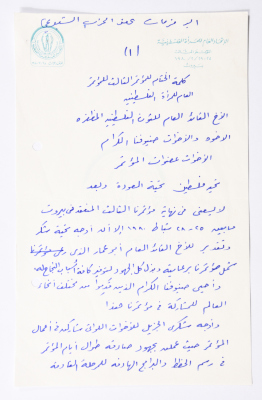 (١)
كلمة الختام للمؤتمر الثالث للمؤتمر
العام للمرأة الفلسطينية
الأخ القائد العام للثورة الفلسطينية المظفرة
الأخوة والأخوات ضيوفنا الكرام
الأخوات عضوات المؤتمر
تحية فلسطين تحية العودة وبعد
لا يسعني في نهاية مؤتمرنا الثالث المنعقد في بيروت
ما بين ٢٥-٢٨ شباط ١٩٨٠ إلا أن أوجه تحية شكر
وتقدير للأخ القائد العام أبو عمار الذي
شمل مؤتمرنا برعايته وبذل كل الجهود لتوفير كافة أسباب النجاح له
وأحيي ضيوفنا الكرام الذين قدموا من مختلف أنحاء
العالم للمشاركة في مؤتمرنا هذا
وأوجه شكري الجزيل للأخوات اللواتي شاركن في أعمال
المؤتمر حيث عملن بجهود صادقة طوال أيام المؤتمر
في رسم الخطط والبرامج الهادفة للمرحلة القادمة